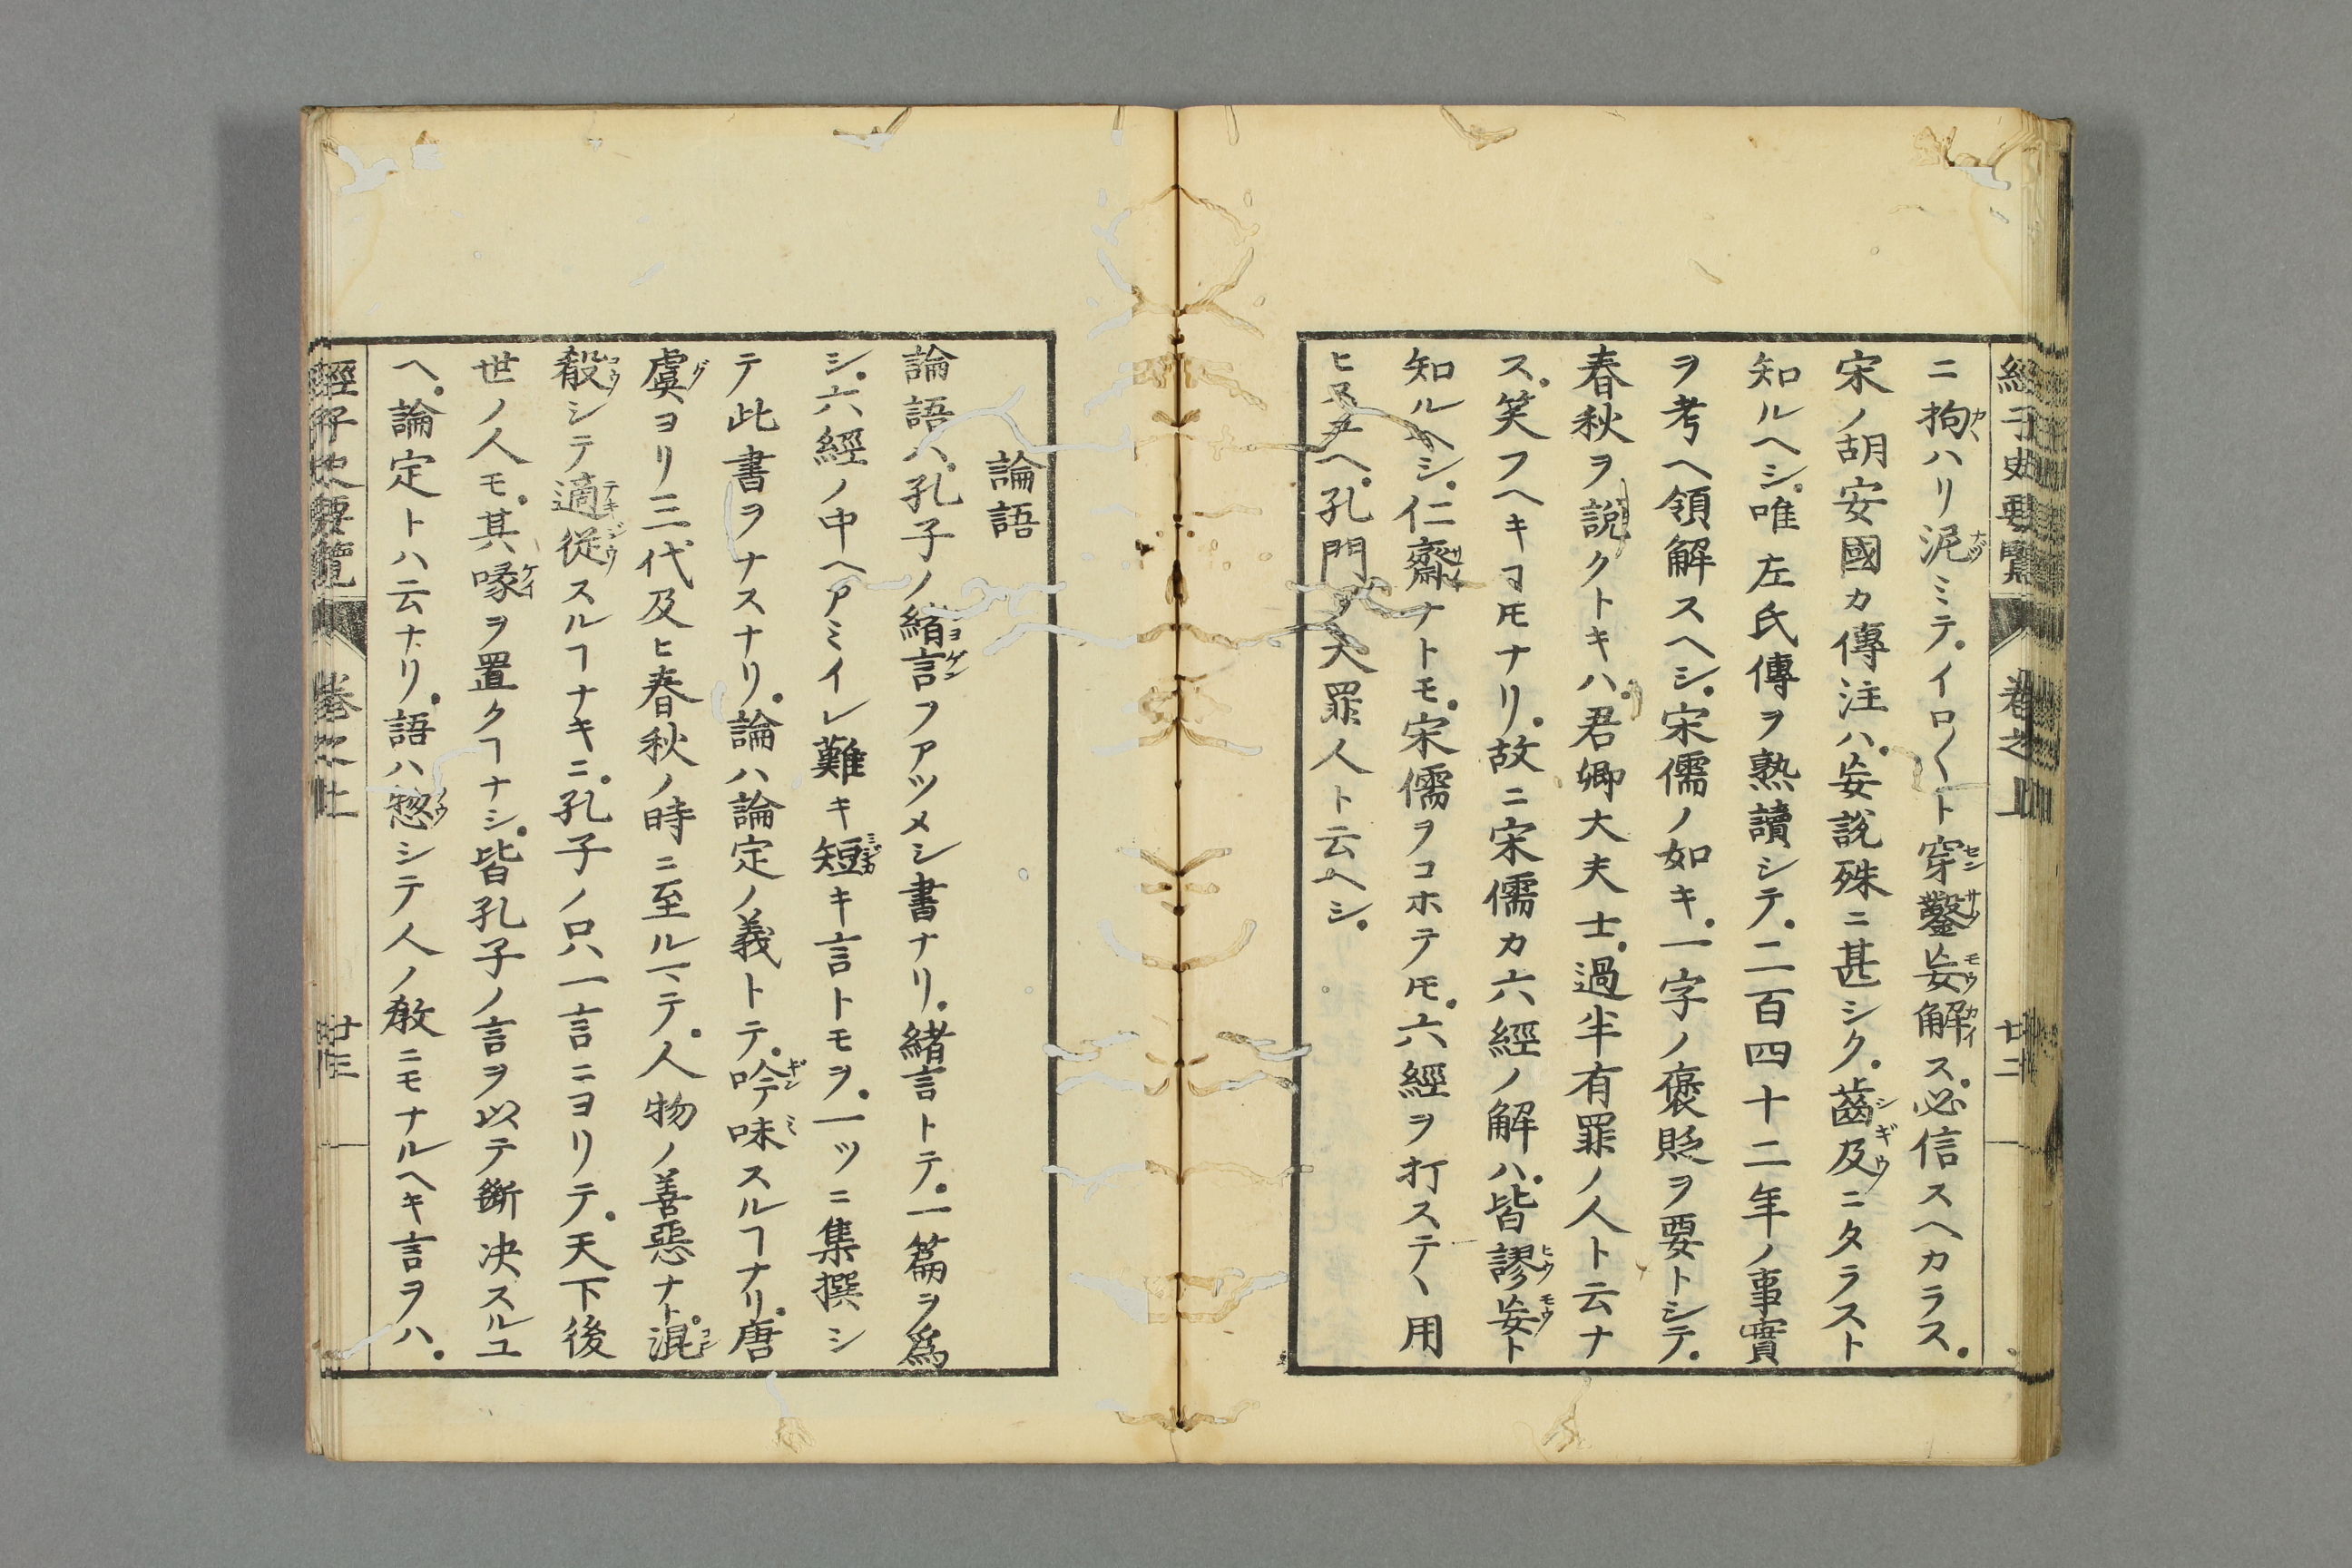 經子史要覽 卷之上 廿二
ニ拘ハリ泥ミテ。イロ〱ト穿鑿妄解ス。必信スヘカラス。
宋ノ胡安國カ傳注ハ。妄說殊ニ甚シク。齒及ニタラスト
知ルヘシ。唯左氏傳ヲ熟讀シテ。二百四十二年ノ事實
ヲ考ヘ領解スヘシ。宋儒ノ如キ。一字ノ褒貶ヲ要トシテ。
春秋ヲ說クトキハ。君卿大夫士。過半有罪ノ人ト云ナ
ス。笑フヘキヿ𪜈ナリ。故ニ宋儒カ六經ノ解ハ。皆謬妄ト
知ルヘシ。仁齋ナトモ。宋儒ヲコホテ𪜈。六經ヲ打ステヽ用
ヒス。孔門ノ大罪人ト云ヘシ。
論語
論語ハ。孔子ノ緒言ヲアツメシ書ナリ。緒言トテ。一篇ヲ爲
シ。六經ノ中ヘアミイレ難キ短キ言トモヲ。一ツニ集撰シ
テ此書ヲナスナリ。論ハ論定ノ義トテ。吟味スルヿナリ。唐
虞ヨリ三代及ヒ春秋ノ時ニ至ルマテ。人物ノ善惡ナト。混
殽シテ適從スルヿナキニ。孔子ノ只一言ニヨリテ。天下後
世ノ人モ。其喙ヲ置クヿナシ。皆孔子ノ言ヲ以テ斷決スルユ
ヘ。論定トハ云ナリ。語ハ惣シテ人ノ敎ニモナルヘキ言ヲハ。
經子史要覽 卷之上 廿三